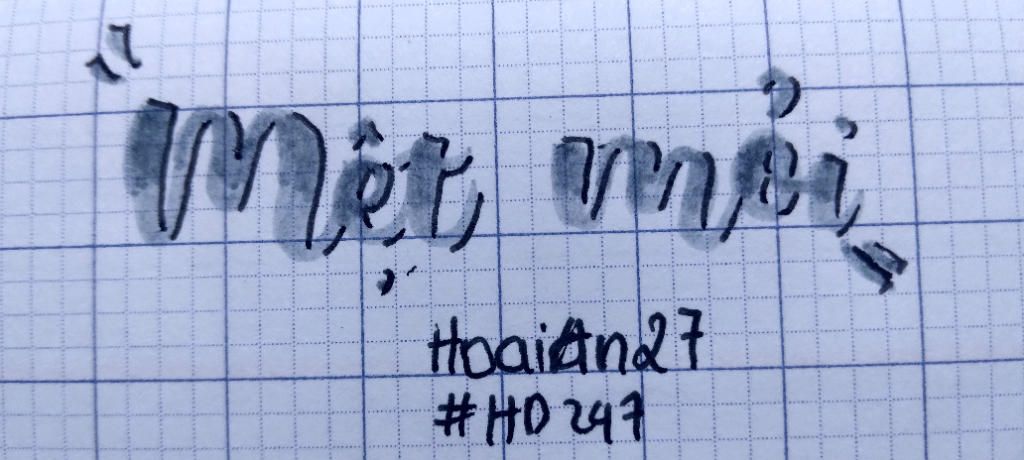 "Mệt mỏi"
HoaiAn27
#HD247